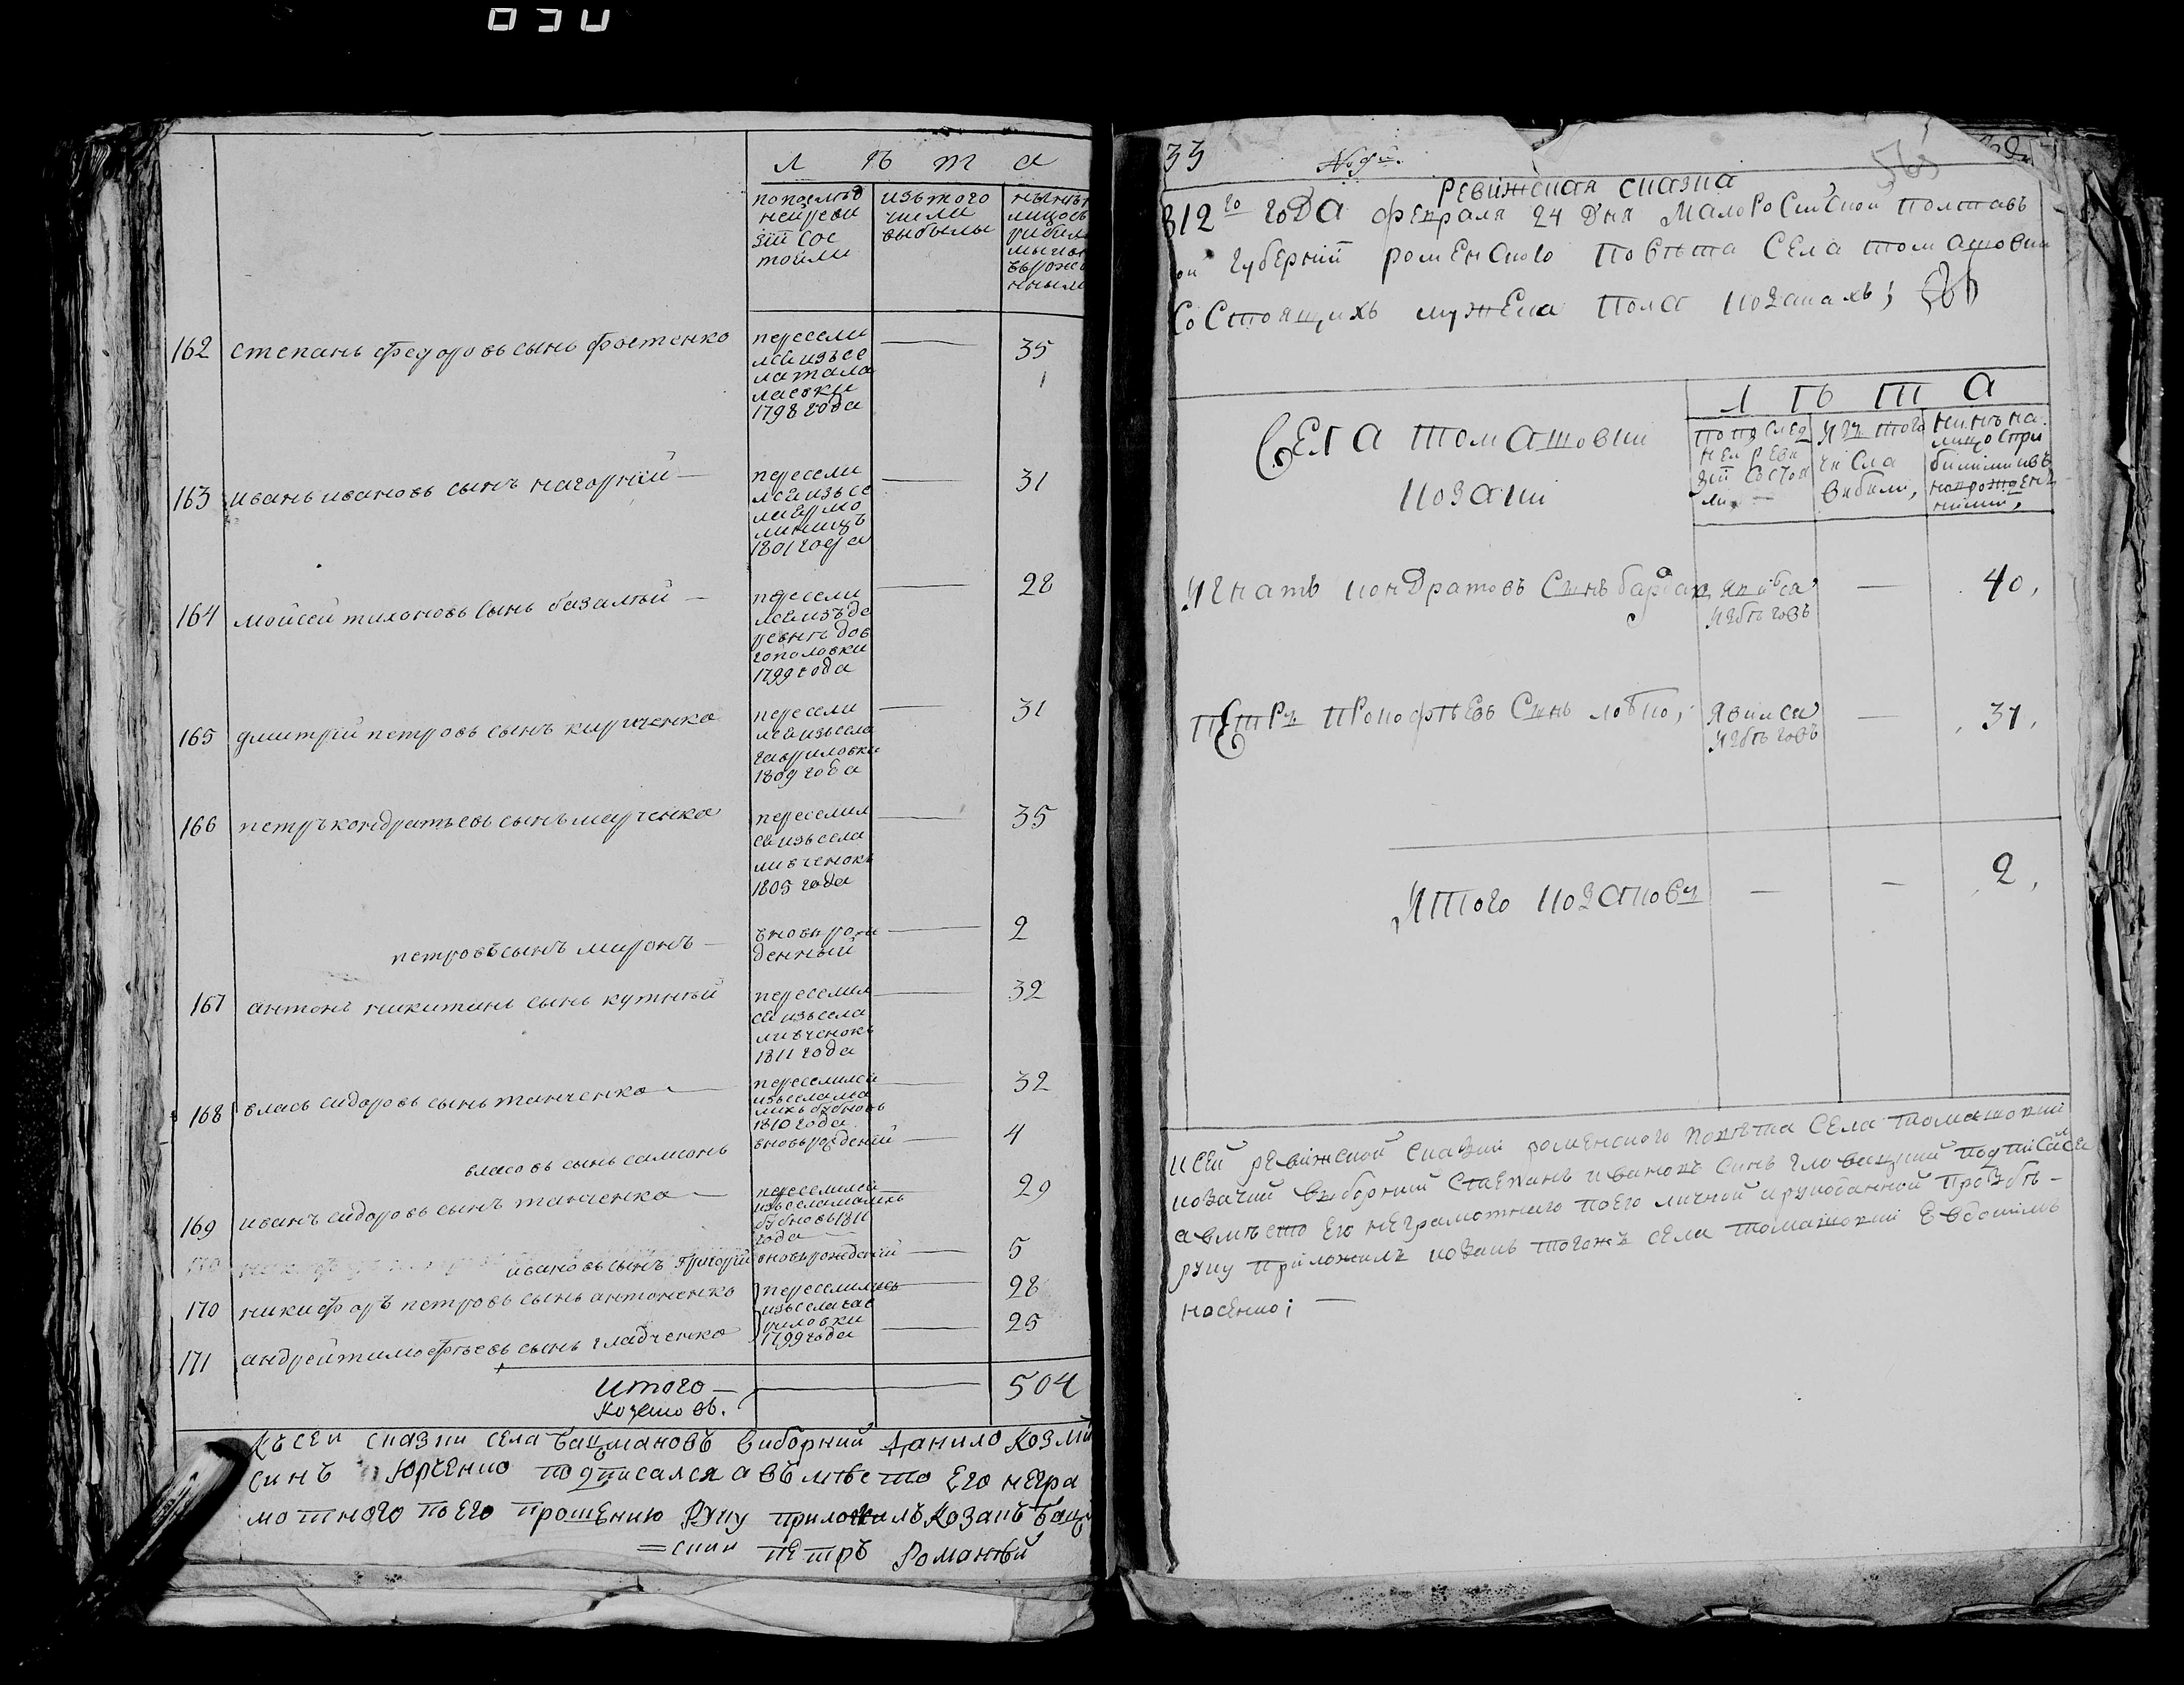 л ѣ т а
по послѣд
ней реви
зіи сос
тояли
изъ того
числа
выбыло
162 степанъ федоровъ сынъ фостенко
пересели
лся изъ се
ла тала
лаевки
1798 года
35
163 иванъ ивановъ сынъ нагорній
пересели
лся изъ се
ла ермо
линицъ
1801 года
31
164 мойсей тихоновъ сынъ базалѣй
пересели
лся изъ де
ревнѣ дов
гополовки
1799 года
28
165 дмитрій петровъ сынъ кириченко
пересели
лся изъ села
гавриловки
1809 года
31
166 петръ кондратьевъ сынъ марченко
переселил
ся изъ села
1805 года
35
петровъ сынъ миронъ
вновь рож
денный
2
167 антонъ никитинъ сынъ кутній
переселил
ся изъ села
1811 года
32
168 власъ сидоровъ сынъ танченко
переселился
изъ села ма
лихъ бубновъ
1810 года
32
власовъ сынъ самсонъ
вновь рожденій
4
169 иванъ сидоровъ сынъ танченко
переселился
изъ села малихъ
бубновъ 1811
года
29
ивановъ сынъ григорій
вновь рожденій
5
170 никифоръ петровъ сынъ антоненко
переселились
изъ села гав
риловки
1799 года
28
171 андрей тимофѣевъ сынъ гладченко
25
итого
козаковъ.
504
Къ сей сказки села Бацмановъ виборний Данило Козми
синъ Юрченко подписался а въ мѣсто его негра
мотного по его прошению руку приложилъ козакъ бацм
=скии Петръ Романѣй
33
Ревижская сказка
812 го года февраля 24 дня Малоросийской полтавъ
ои губерніи роменского повѣта села томашовки
состоящихъ мужеска пола козакахъ;
Села томашовки
козаки
Л ѣ т а
по послед
ней реви
зіи состоя
ли
изъ того
числа
вибили,
нинѣ на
лицо спри
билими и въ
новрожден
ними,
Игнатъ кондратовъ синъ бардак
явився
изъ бѣговъ
40,
Петръ Прокофѣевъ синъ лобко,
явился
изъ бѣговъ
31,
Итого козаковъ
2,
к сей ревижской сказки роменского повѣта села томашовки
козачий виборний Степанъ ивановъ синъ гловацкий подписался
а вмѣсто его неграмотнаго по его личной и рукоданной прозбѣ-
руку приложилъ козакъ тогожъ села томашовки Евдокимъ
носенко;